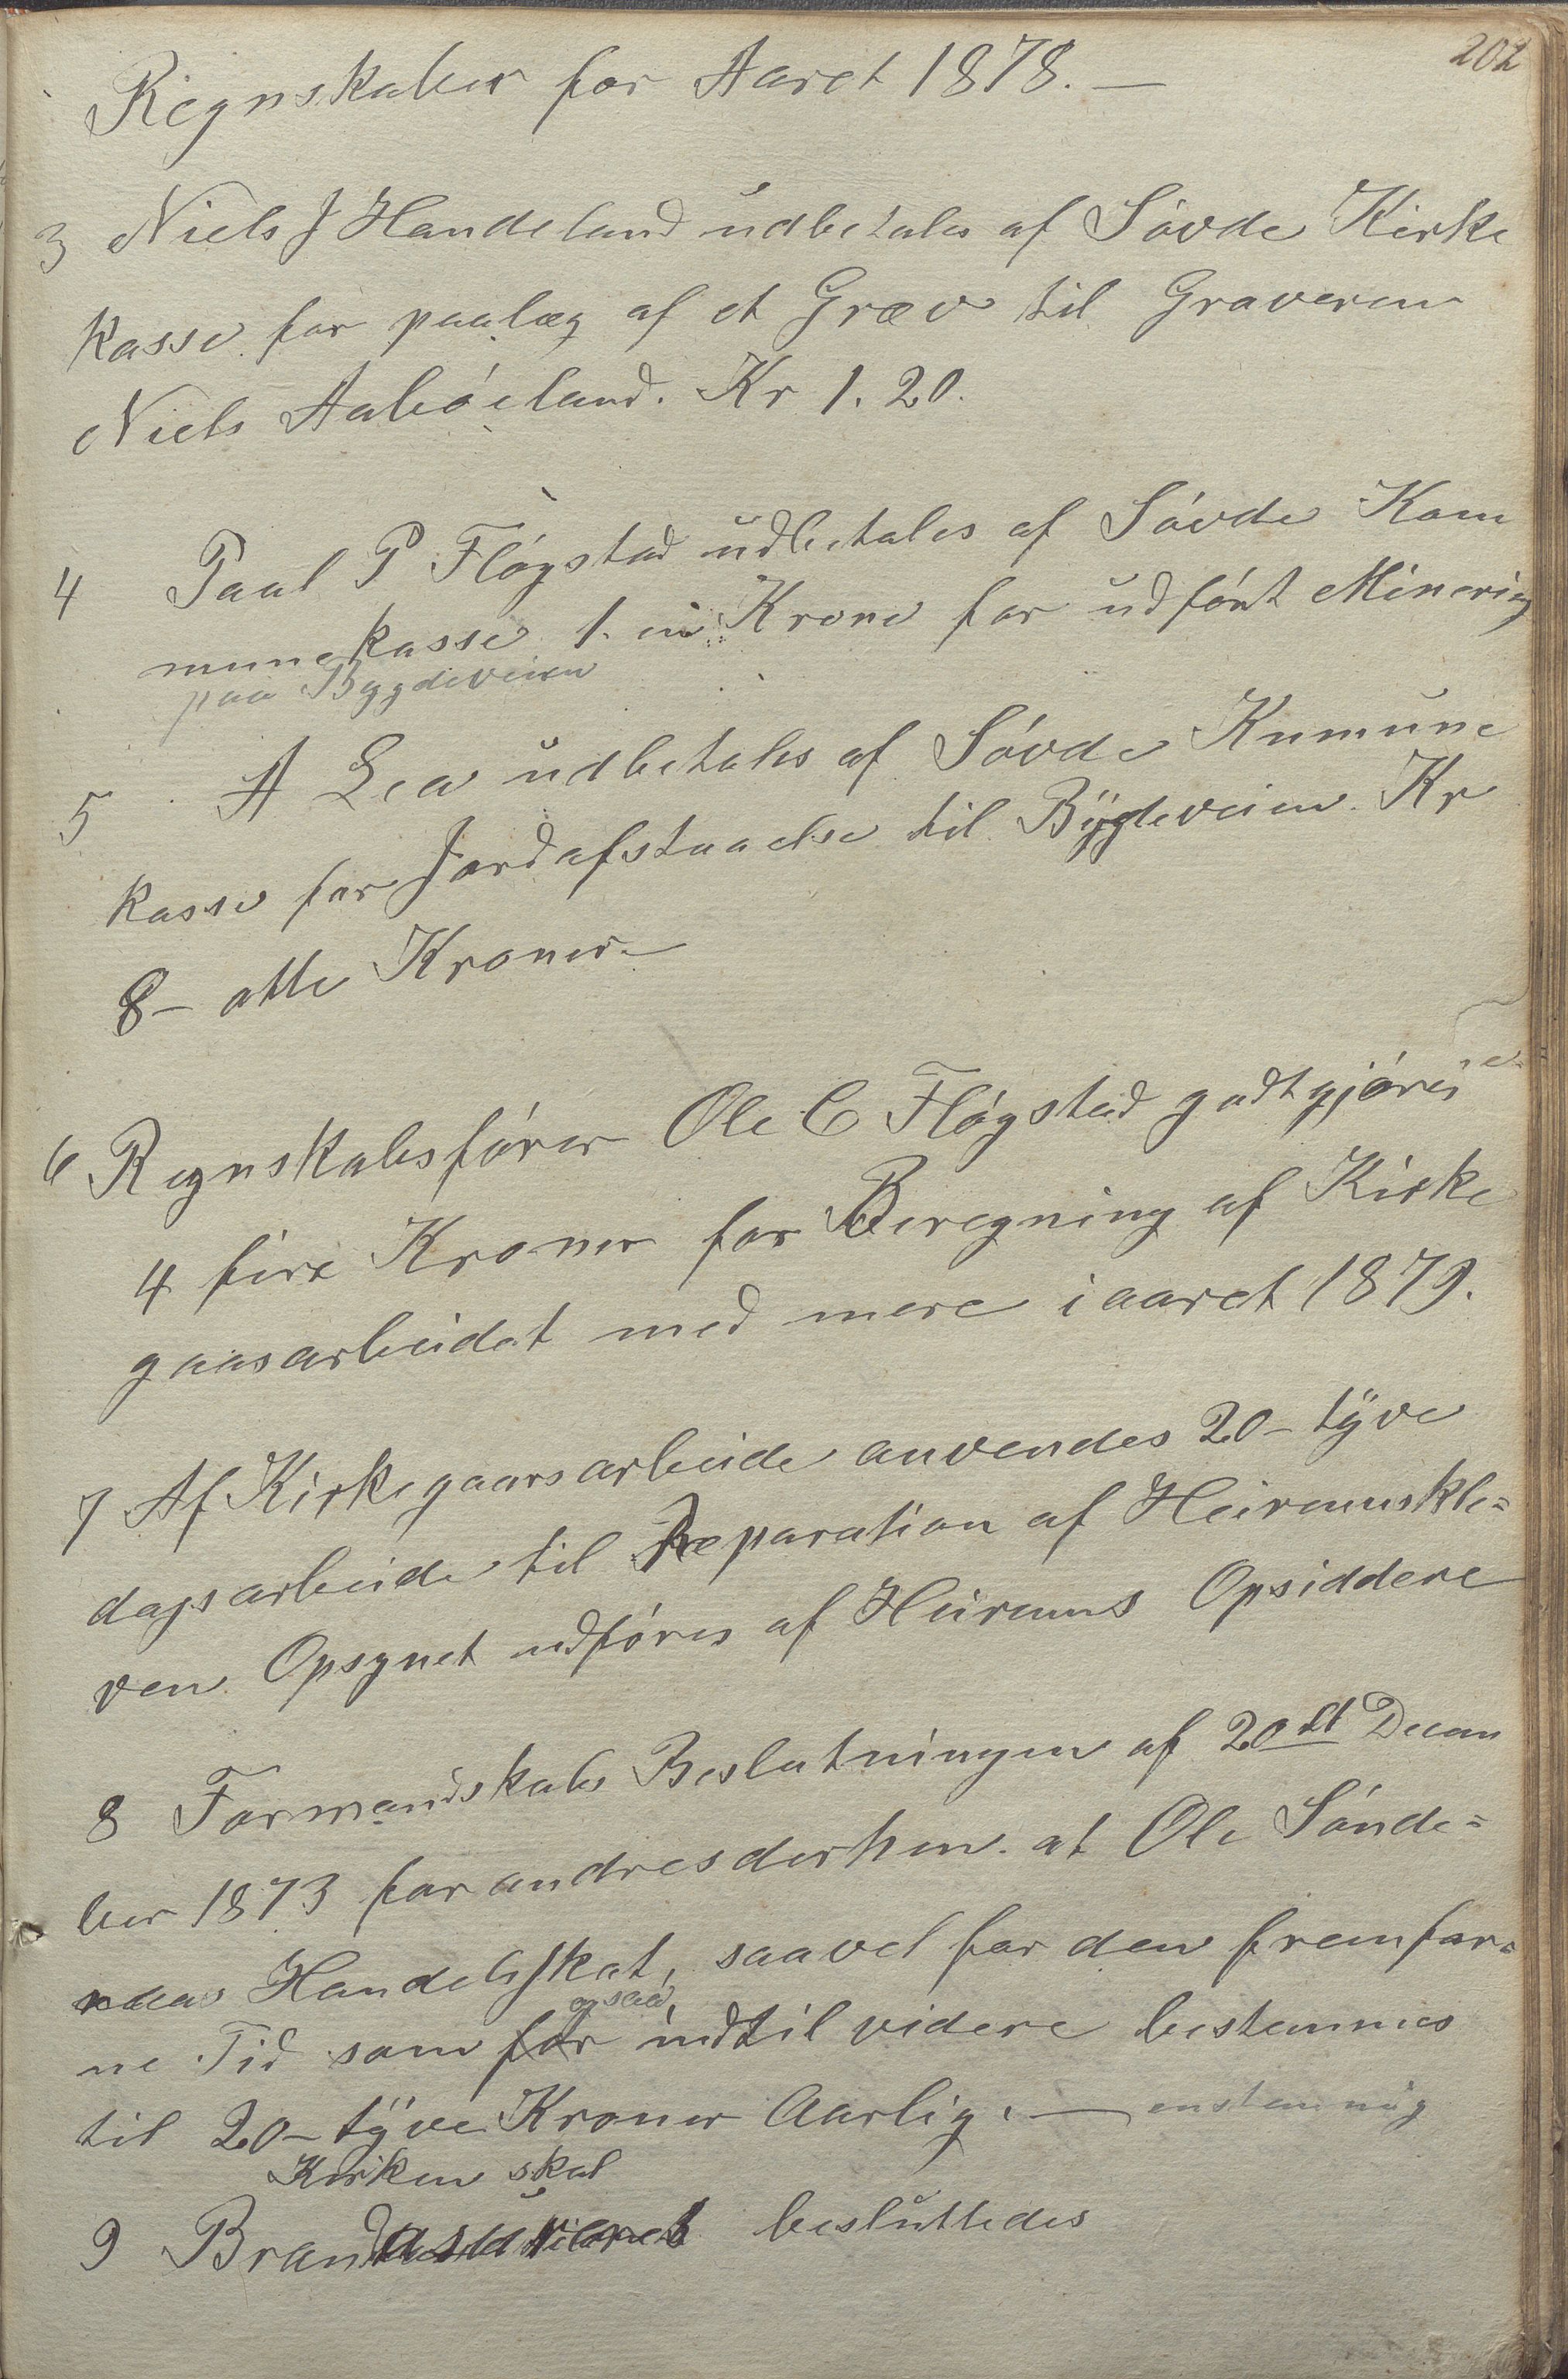 202
Regnskaber for Aaret 1878. —
3 Niels J Handeland udbetales af Søvde Kirke
kasse for paalæg af et Græv til Graveren
Niels Aabøeland. Kr 1.20.
4 Paal P Fløgstad udbetales af Søvde Kom
munekasse 1. en Krone for udført Minering
paa Bygdeveien
5 A Lea udbetales af Søvde Kumune
kasse for Jordafstaaelse til Bygdeveien Kr
8 – otte Kroner –
6 Regnskabsfører Ole C Fløgstad godtgjøres
4 fire Kroner for Beregning af Kirke
gaasarbeidet med mere i aaret 1879.
7 Af Kirkegaarsarbeide anvendes 20 – tyve
dagsarbeide til Reparation af Heiremskle=
ven Opsynet udføres af Heirems Opsiddere
8 Formandskabs Beslutningen af 20de Decem
ber 1873 forandres derhen at Ole Sønde=
naas Handelsskat, saavel for den fremfar=
ne Tid som for ogsaa indtil videre bestemmes
til 20 – tyve Kroner Aarlig. — enstemmig
Kirken skal
9 Brand besluttedes